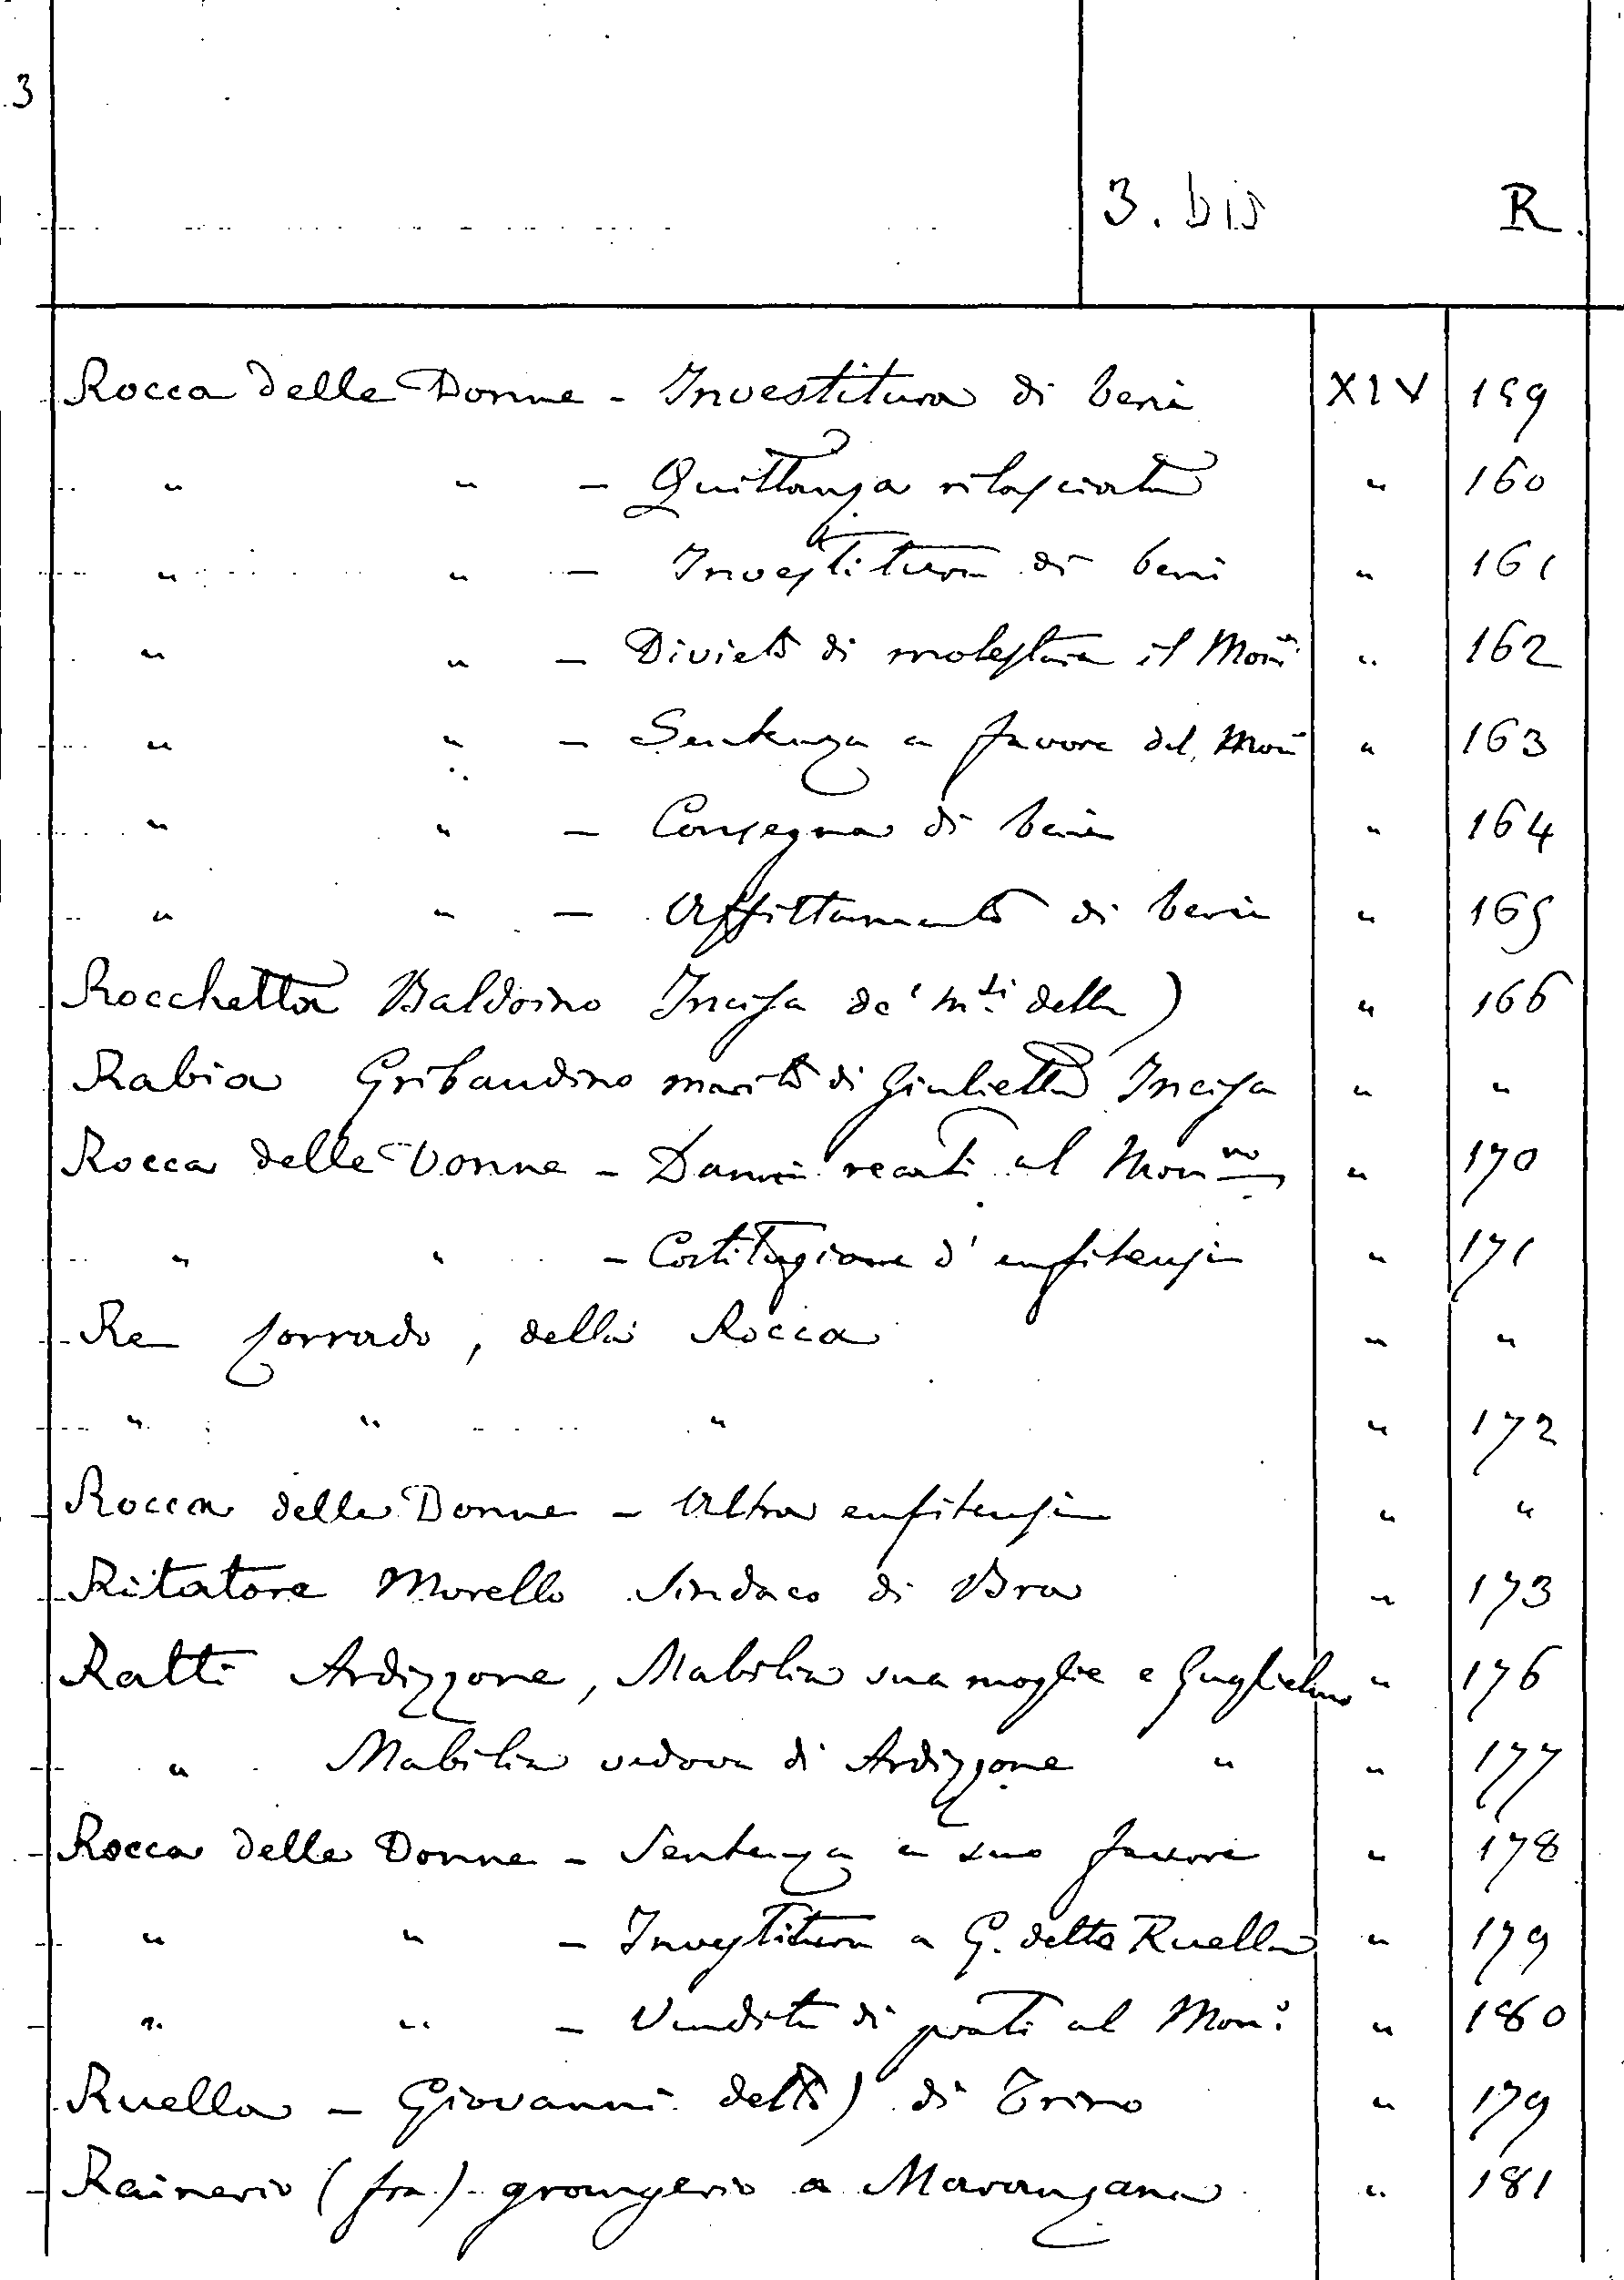 3
3. bis R.
Rocca delle Donne - Investitura di beni XIV 159
" " - Quittanza rilasciata " 160
" " - Investitura di beni " 161
" " - Divieto di molestare il Mon. " 162
" " - Sentenza a favore del Mon. " 163
" " - Consegna di beni " 164
" " - Affittamento di beni " 165
Rocchetta Baldoino Incisa de' m.si della) " 166
Rabia Gribaudino marito di Giulietta Incisa " "
Rocca delle Donne - Danni recati al Mon.no " 170
" " - Costituzione d'enfiteusi " 171
Re Corrado, della Rocca " "
" " " " 172
Rocca delle Donne - Altra enfiteusi " "
Ritatore Morello Sindaco di Bra " 173
Ratti Ardizzone, Mabilia sua moglie e Guglielmo " 176
" Mabilia vedova di Ardizzone " " 177
Rocca delle Donne - Sentenza a suo favore " 178
" " - Investitura a G. detto Ruella " 179
" " - Vendita di prati al Mon.o " 180
Ruella - Giovanni detto) di Trino " 179
Rainerio (fra) grangerio a Maranzana " 181